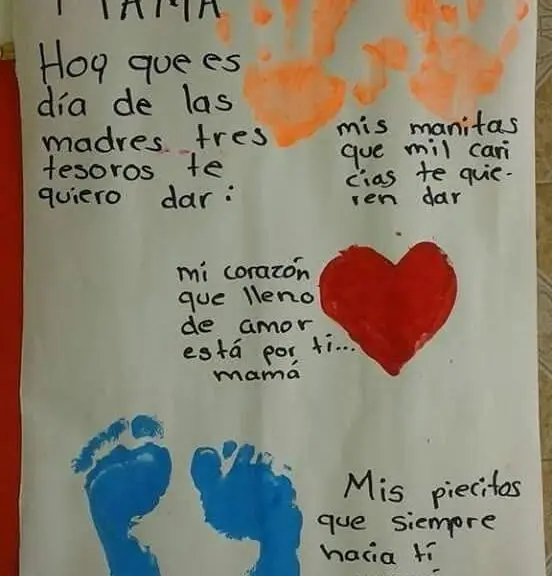 MAMÁ
Hoy que es
día de las
madres tres
tesoros te
quiero dar:
mis manitas
que mil cari
cias te quie-
ren dar
mi corazón
que lleno
de amor
está por ti...
mamá
Mis piecitos
que siempre
hacia tí